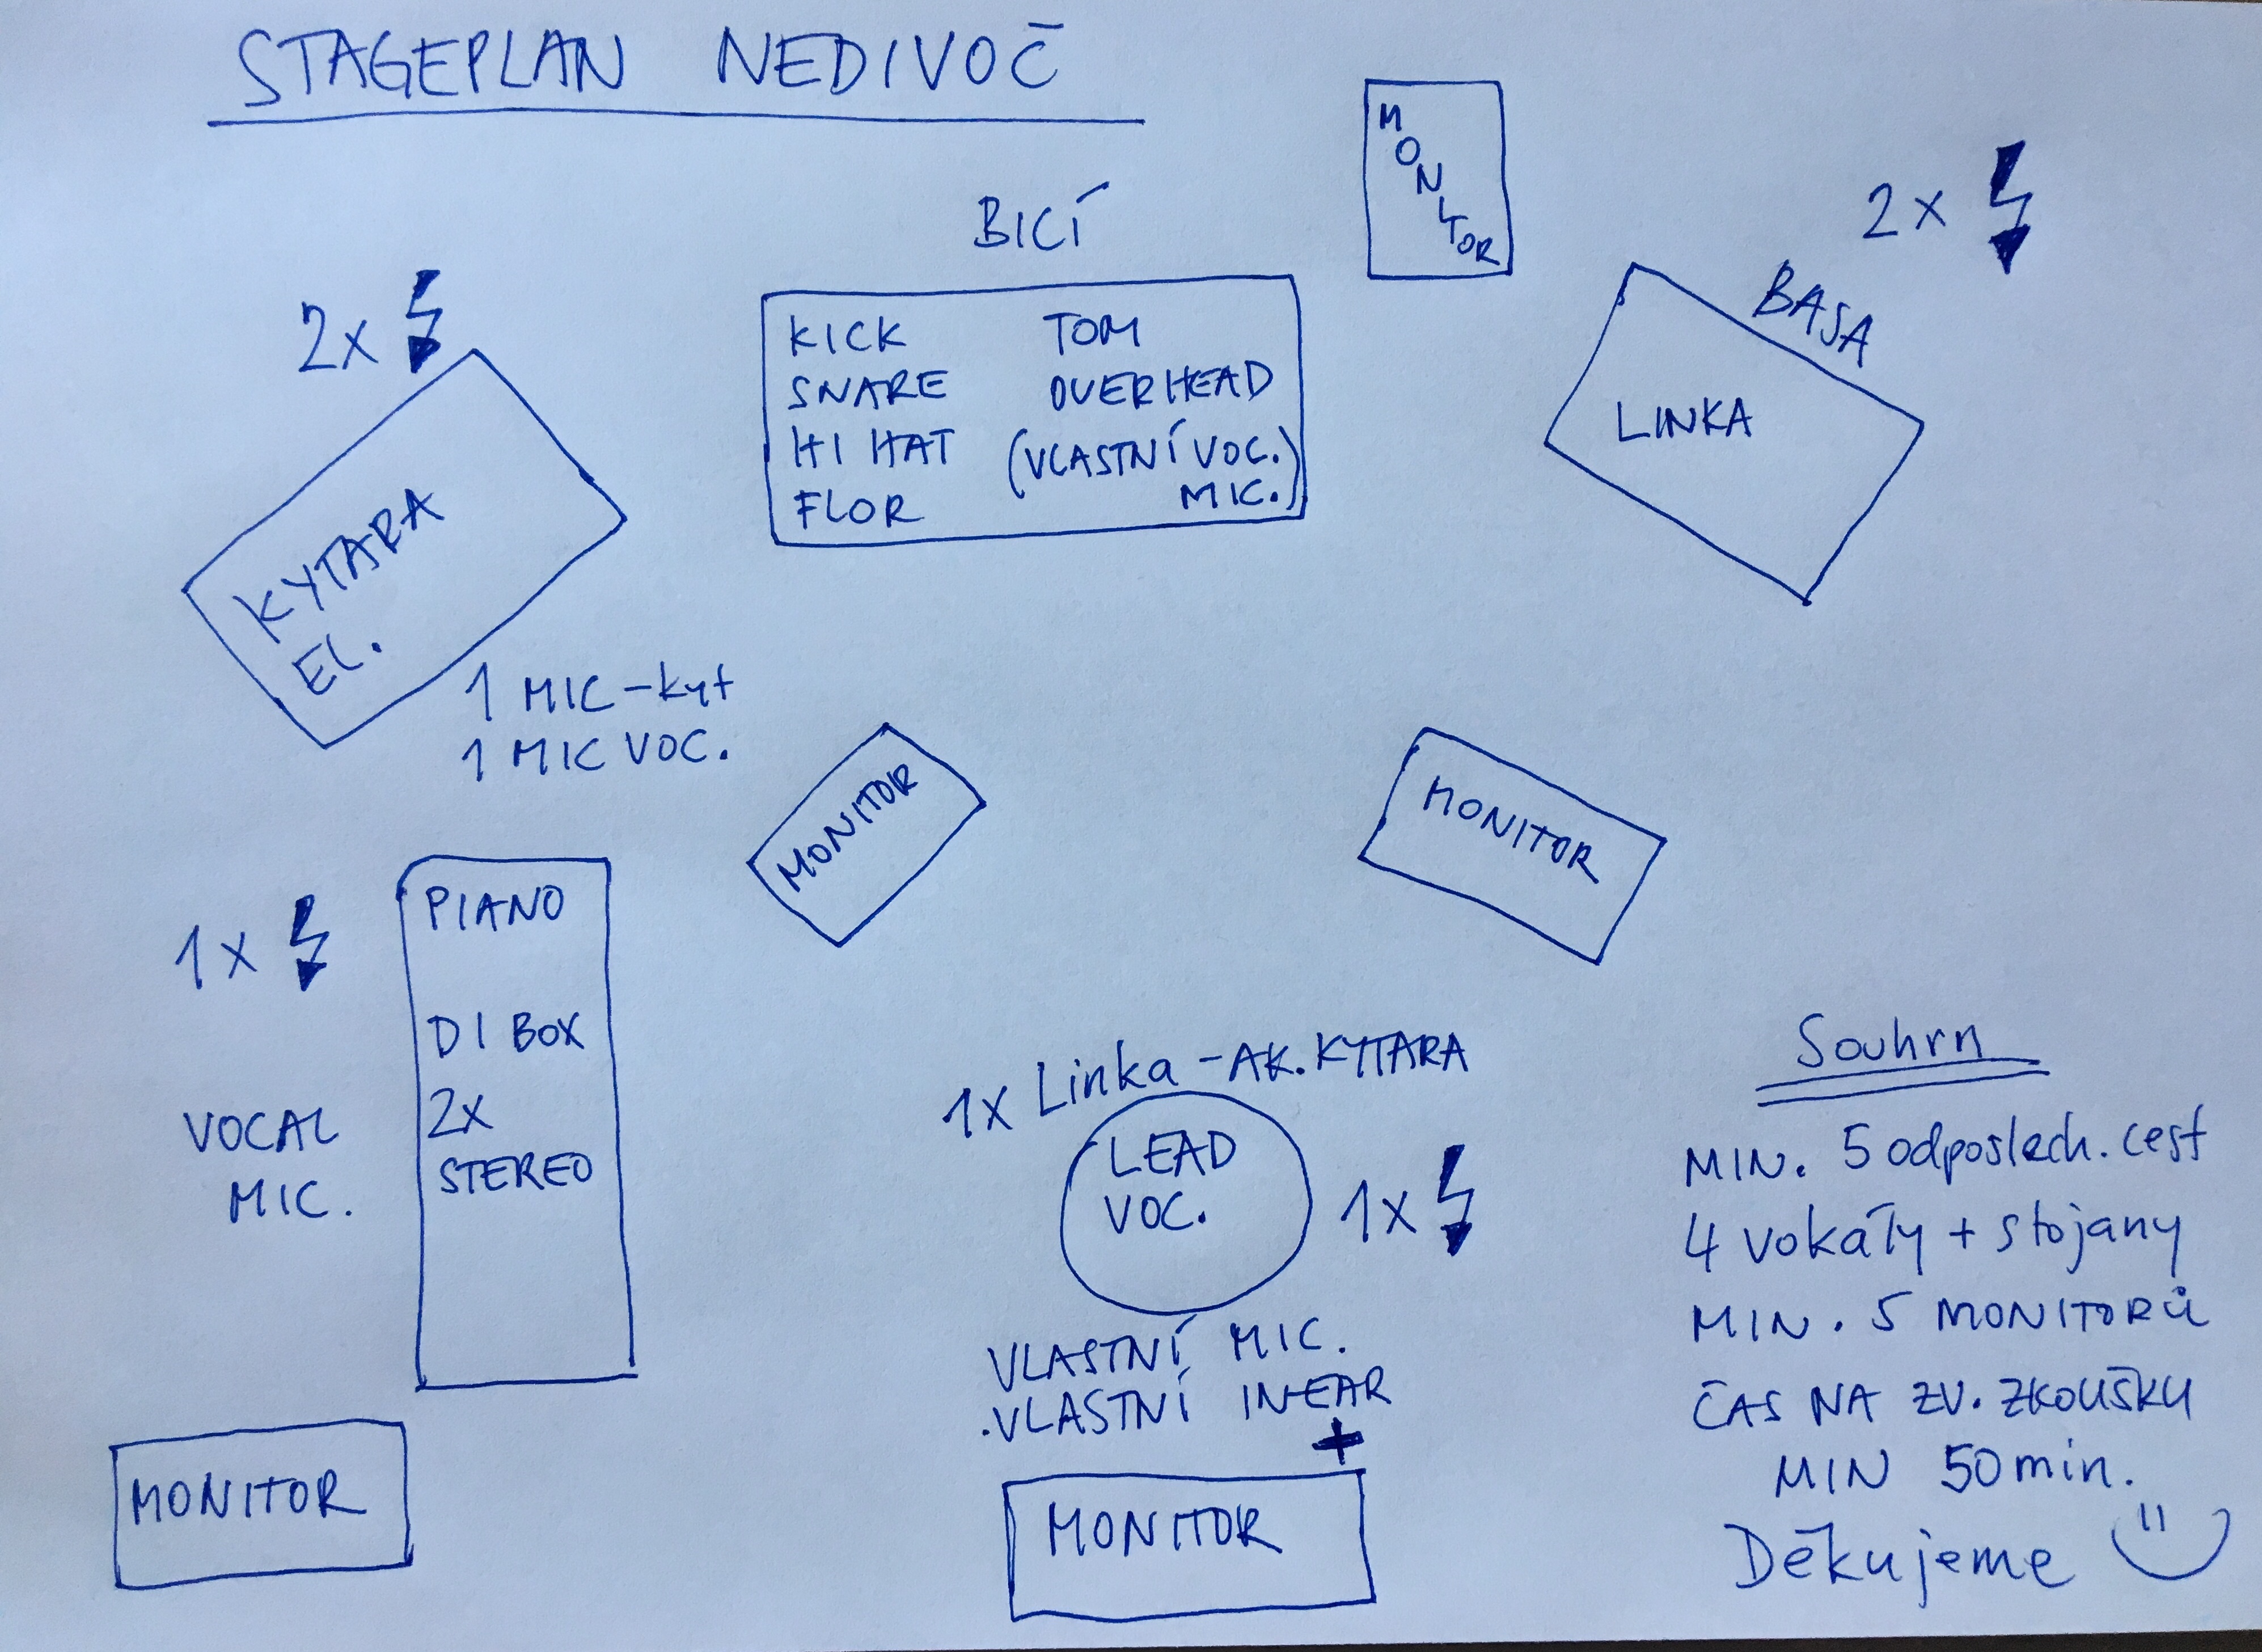 STAGEPLAN NEDIVOČ
MONITOR
2x
BICÍ
2x
BASA
KICK TOM
SNARE OVERHEAD
HI HAT (VLASTNÍ VOC.
FLOR MIC.)
LINKA
KYTARA
EL.
1 MIC - kyt
1 MIC VOC.
MONITOR
MONITOR
1x
PIANO
DI BOX
2x
STEREO
VOCAL
MIC.
MONITOR
1x Linka - AK. KYTARA
LEAD
VOC.
1x
VLASTNÍ MIC.
.VLASTNÍ INEAR
+
MONITOR
Souhrn
MIN. 5 odposlech. cest
4 vokály + stojany
MIN. 5 MONITORŮ
ČAS NA ZV. ZKOUŠKU
MIN 50 min.
Děkujeme